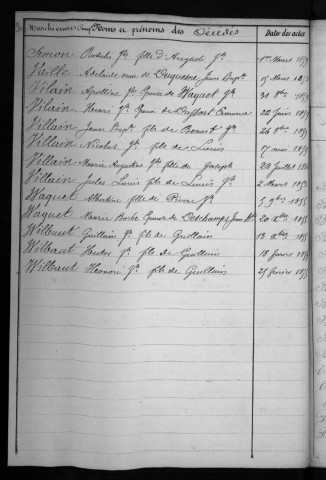 Noms et prénoms des Décédés Dates des actes
Simon fille d'August 1er Mars 185
Vaille Adelaide veuve de Duquesne, Jean Bapt. 5 Mars 185
Vilain Apolline épouse de Haquet 31 8bre 185
Vilain Henri 22 Juin 185
Villain Jean Bapt. fils de Benoit 26 8bre 185
Villain Nicolas fils de Louis 17 mai 185
Villain Marie Augustine fille de Joseph 29 Juillet 185
Villain Jules Louis fils de Louis 2 Mars 185
Waquet Albertine fille de Pierre 5 9bre 185
Waquet Marie Barbe épouse de Deschamps Jean Bte 20 Xbre 185
Wilbaut Guillain fils de Guillain 13 Xbre 185
Wilbaut Hector fils de Guillain 18 février 185
Wilbaut Honoré fils de Guillain 25 février 185